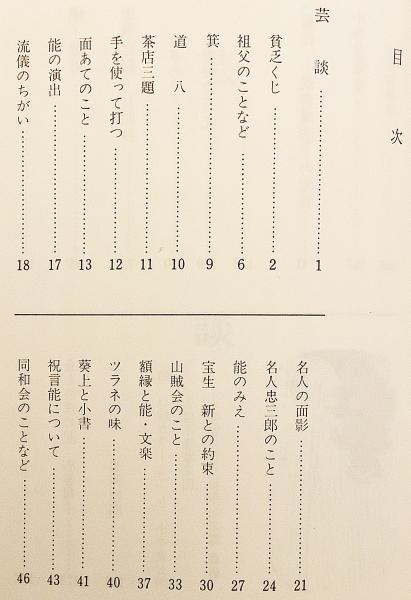 目次
芸談……………………1
貧乏くじ……………………2
祖父のことなど……………………6
箕……………………9
道八……………………10
茶店三題……………………11
手を使って打つ……………………12
面あてのこと……………………13
能の演出……………………17
流儀のちがい……………………18
名人の面影……………………21
名人忠三郎のこと……………………24
能のみえ……………………27
宝生　新との約束……………………30
山賊会のこと……………………33
額縁と能・文楽……………………37
ツラネの味……………………40
葵上と小書……………………41
祝言能について……………………43
同和会のことなど……………………46